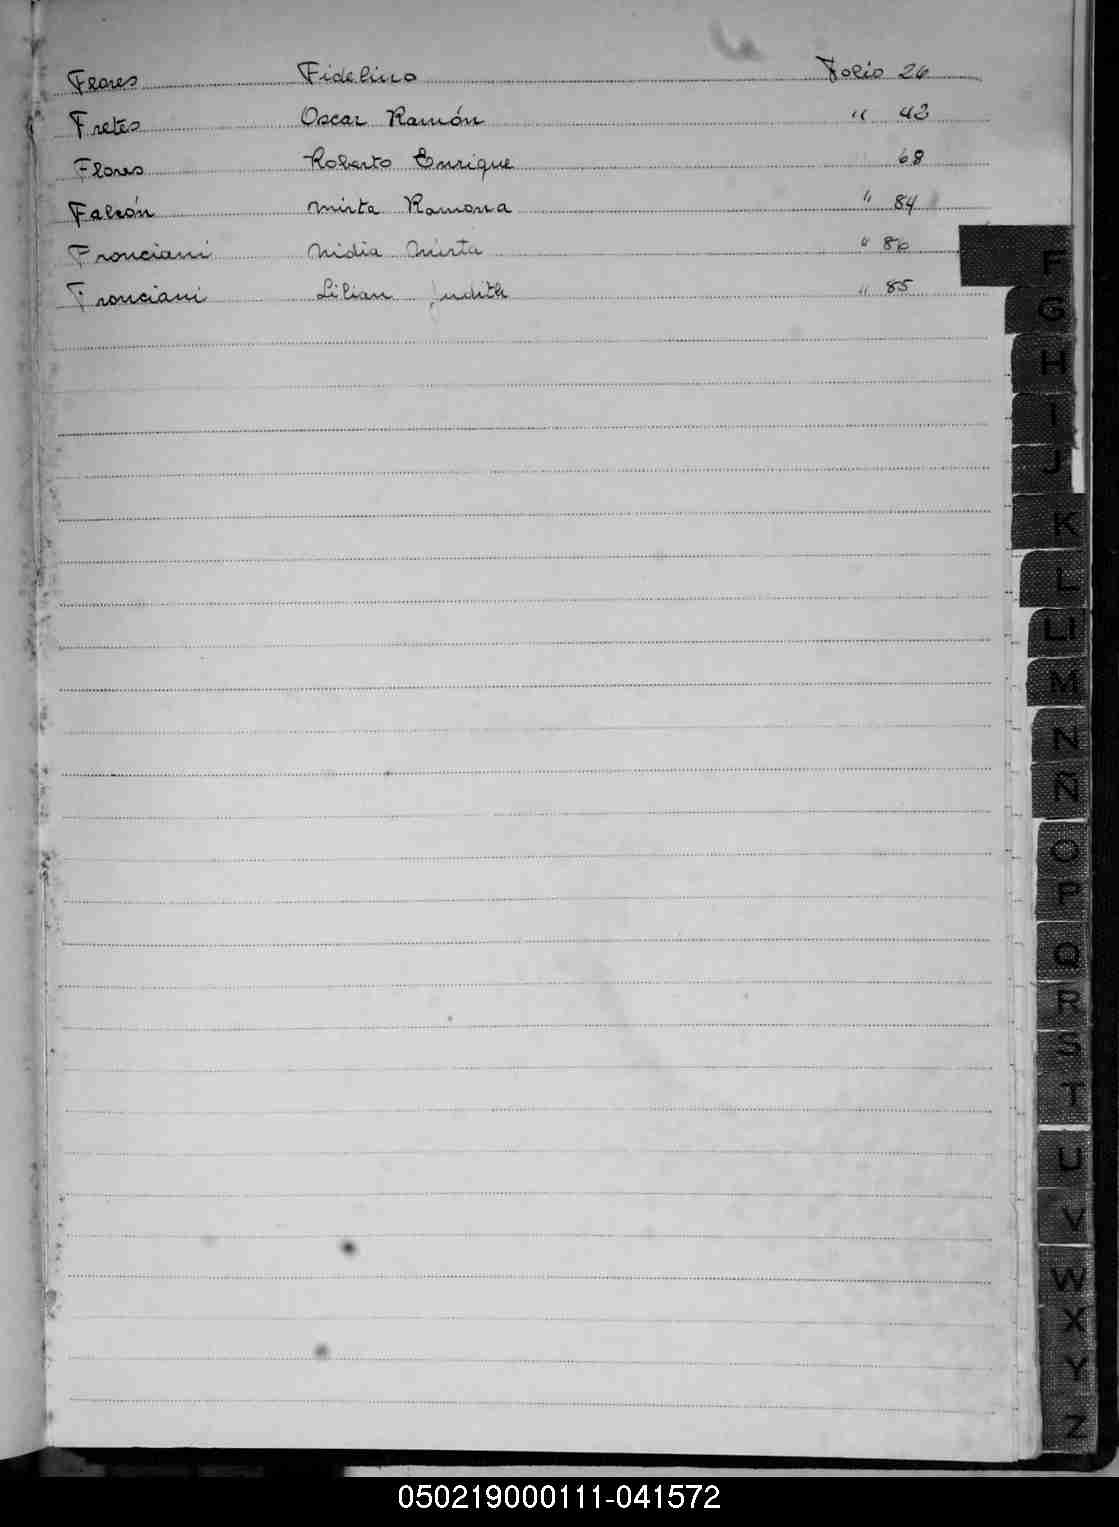 Flores Fidelino Folio 26
Fretes Oscar Ramón " 43
Flores Roberto Enrique 68
Falcón Mirta Ramona " 84
Fronciani Nidia Mirta " 86
Fronciani Lilian Judith " 85
F
G
H
I
J
K
L
Ll
M
N
Ñ
O
P
Q
R
S
T
U
V
W
X
Y
Z
050219000111-041572